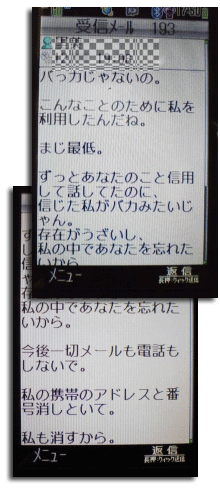 17:50
受信ﾒｰﾙ 193
バっカじゃないの。
こんなことのために私を
利用したんだね。
まじ最低。
ずっとあなたのこと信用
して話してたのに、
信じた私がバカみたいじ
ゃん。
存在がうざいし、
私の中であなたを忘れた
いから
ﾒﾆｭｰ
返信
長押:クイック返信
私の中であなたを忘れた
いから。
今後一切メールも電話も
しないで。
私の携帯のアドレスと番
号消しといて。
私も消すから。
ﾒﾆｭｰ
返信
長押:クイック返信